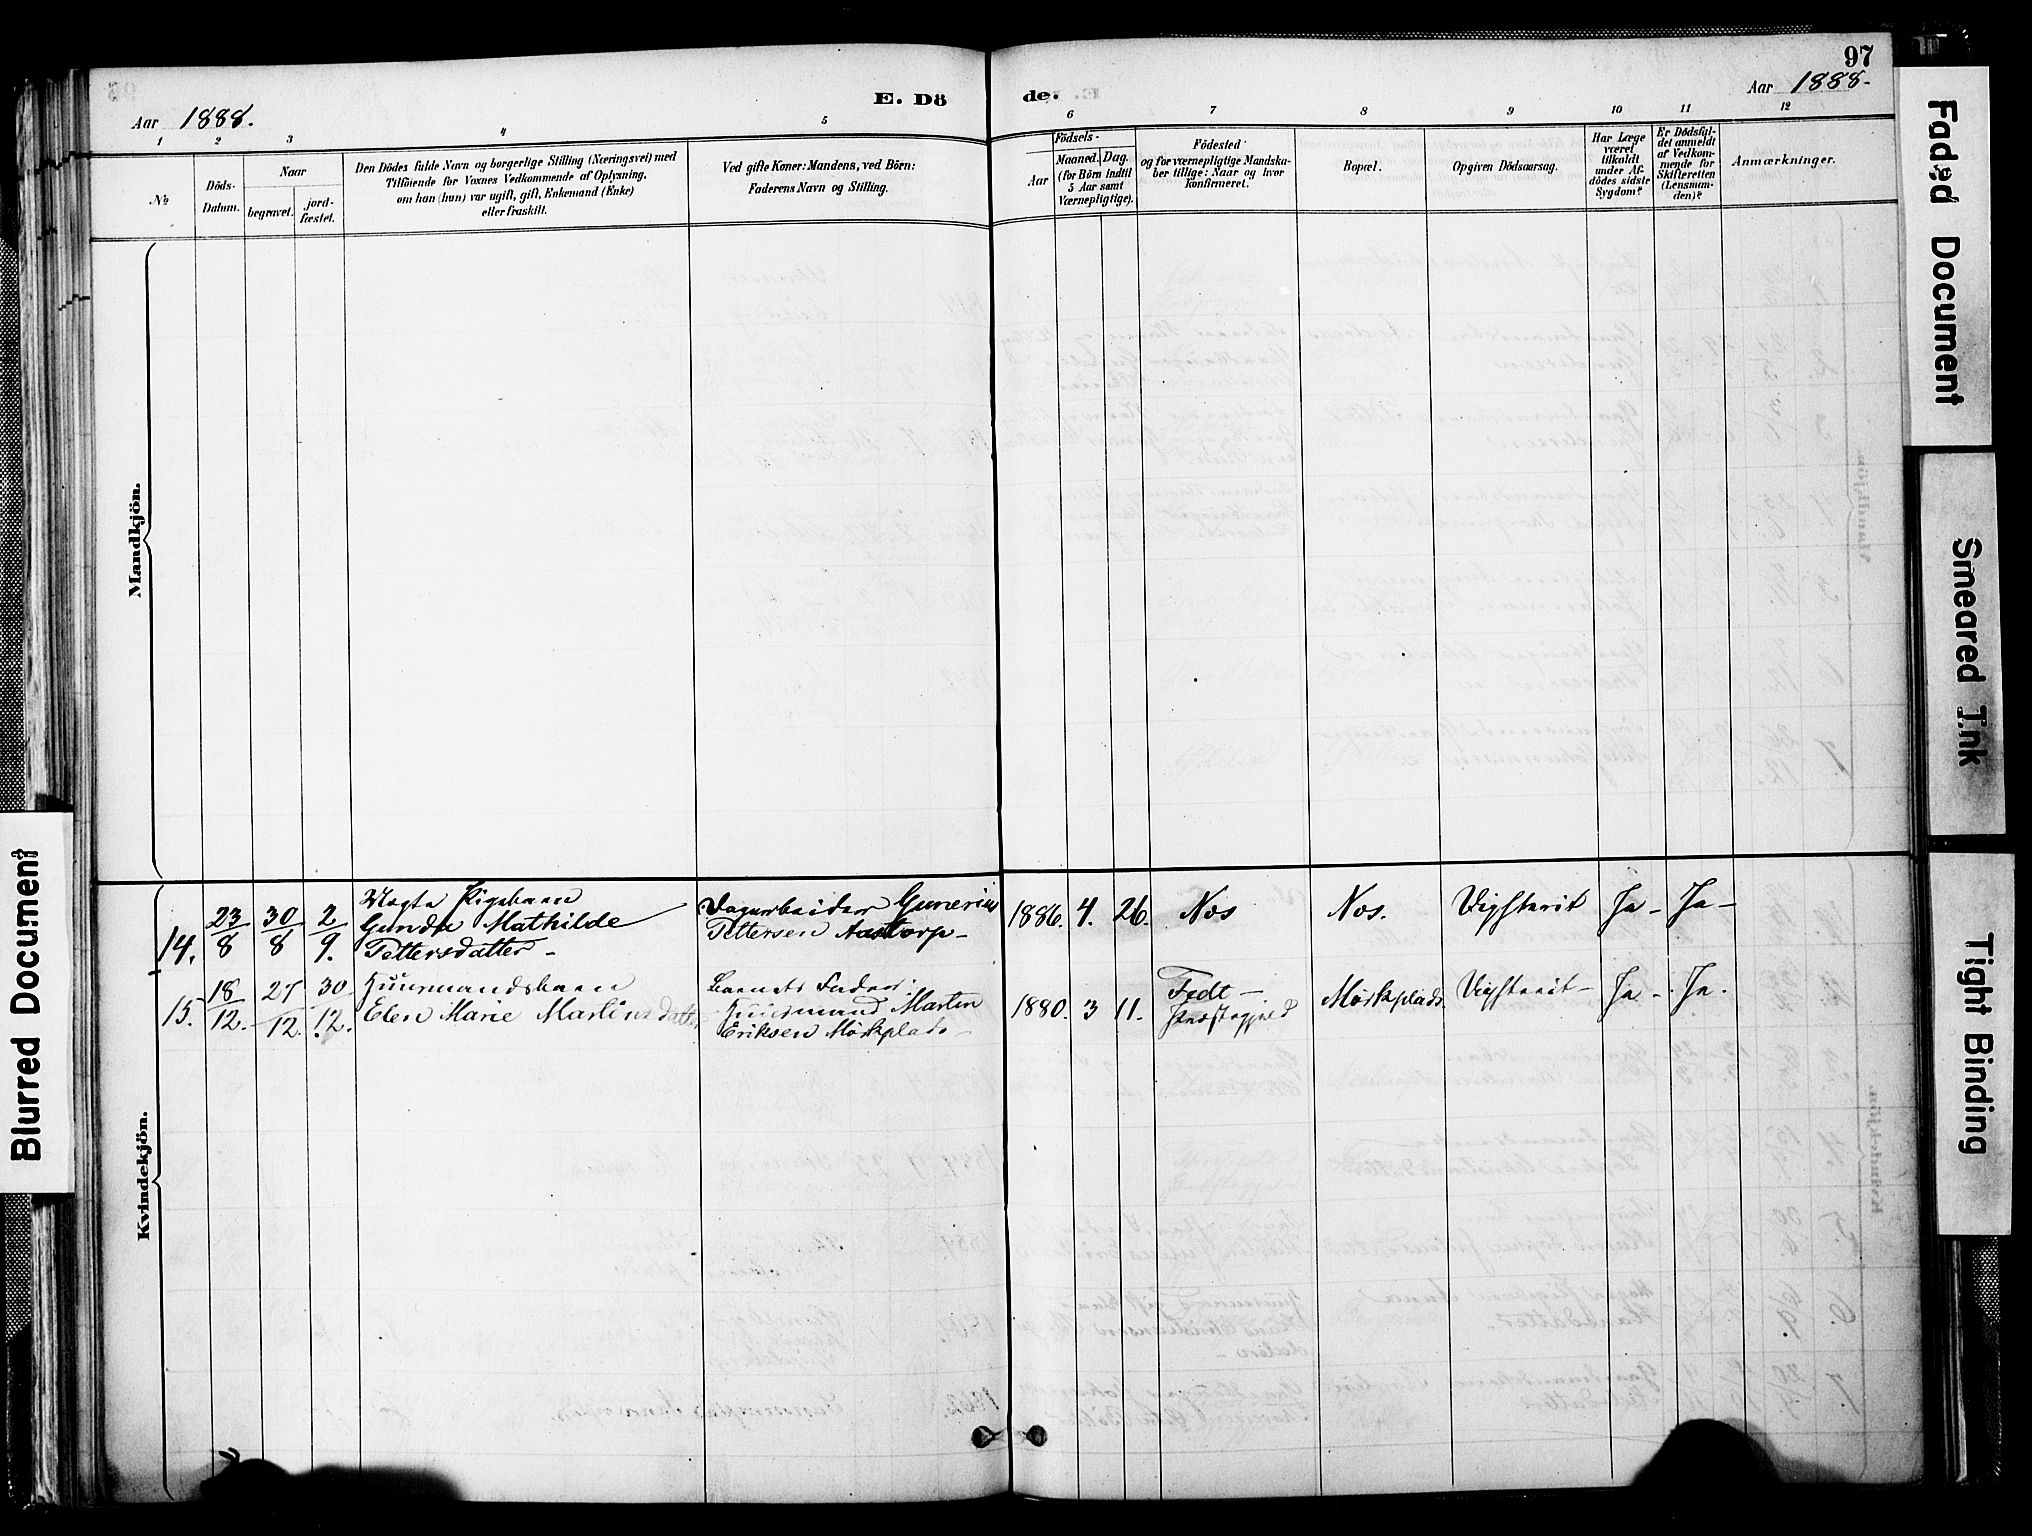 97
Aar 1888.
E. Dö
de.
Aar 1888-
1 2 3 4 5 6 7 8 9 10 11 12
No
Döds-
Datum.
Naar
begravet.
jord-
fæstet.
Den Dödes fulde Navn og borgerlige Stilling (Næringsvei) med
Tilföiende for Voxnes Vedkommende af Oplysning,
om han (hun) var ugift, gift, Enkemand (Enke)
eller fraskilt.
Ved gifte Koner: Mandens, ved Börn:
Faderens Navn og Stilling.
Födsels-
Aar
Maaned. Dag.
(for Börn indtil
5 Aar samt
Værnepligtige).
Födested
og for værnepligtige Mandska-
ber tillige: Naar og hvor
konfirmeret.
Bopæl.
Opgiven Dödsaarsag.
Har Læge
været
tilkaldt
under Af-
dödes sidste
Sygdom?
Er Dödsfal-
det anmeldt
af Vedkom-
mende for
Skifteretten
(Lensman-
den)?
Anmærkninger.
Mandkjön.
Kvindekjön.
14.
23/8
30/8
2/9.
Pigebarn
Gunda Mathilde
Pettersdatter -
Dagarbeider Gunerius
Pettersen Aastorp-
1886. 4. 26.
Nos
Nos.
Ja - Ja -
15.
18/12.
27/12.
30/12.
Huusmandsbarn
Elen Marie Martinsdatter
Barnets Fader:
Huusmand Martin
Eriksen Mörkplads -
1880. 3 11.
Fedt -
Præstegjeld
Mörkplads.
Ja - Ja.
Faded Document
Smeared Ink
Tight Binding
Blurred Document